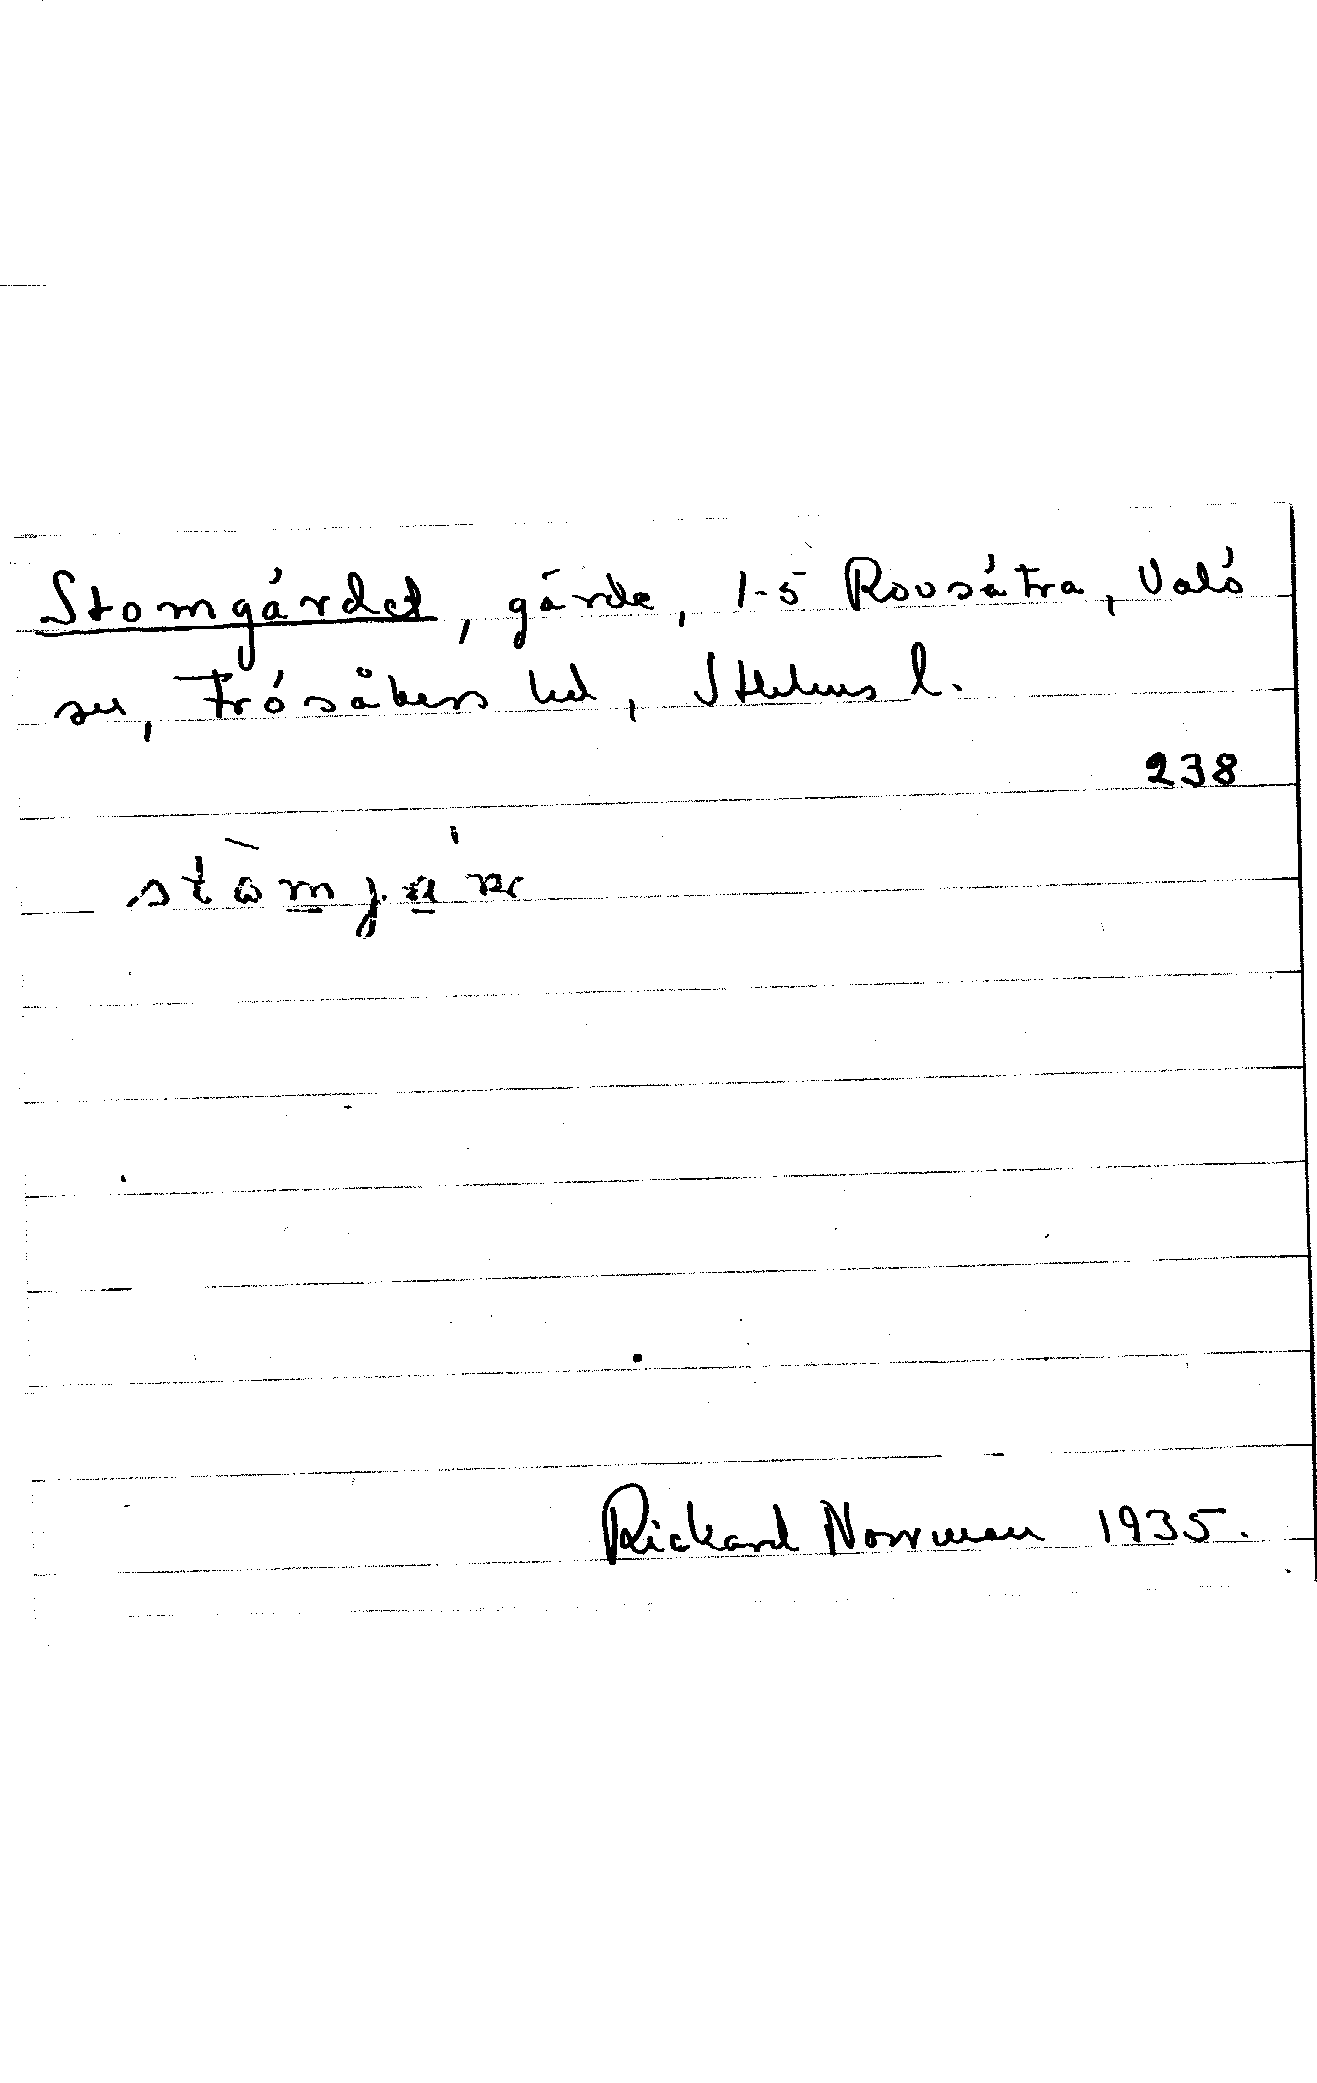 Stomgärdet, gärde, 1-5 Rovsätra, Valö
sn, Frösåkers hd, Sthlms l.
238
Rickard Norrman 1935.